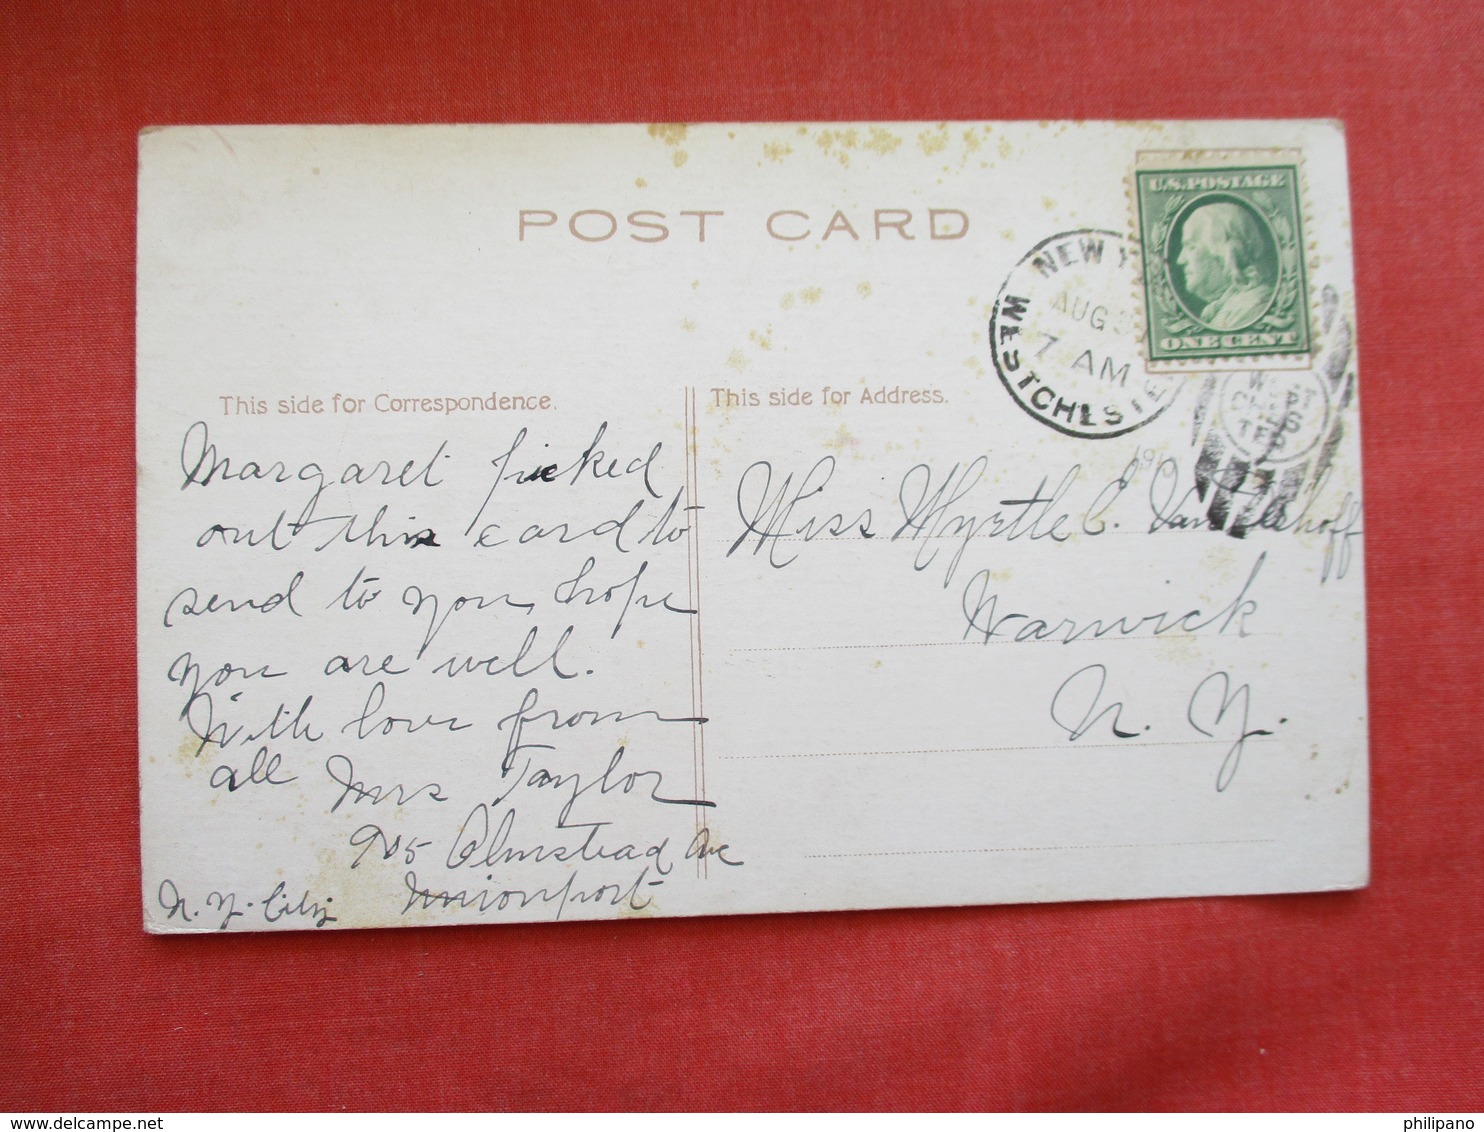 POST CARD
U.S. POSTAGE
ONE CENT
NEW Y
AUG 3
7 AM
WESTCHESTE
This side for Correspondence.
This side for Address.
Margaret picked
out this card to
send to you, hope
you are well.
With love from
all Mrs Taylor
905 Olmstead Ave
Unionport
N. Y. City
1910
Miss Myrtle E.
Warwick
N. Y.
www.delcampe.net
philipano